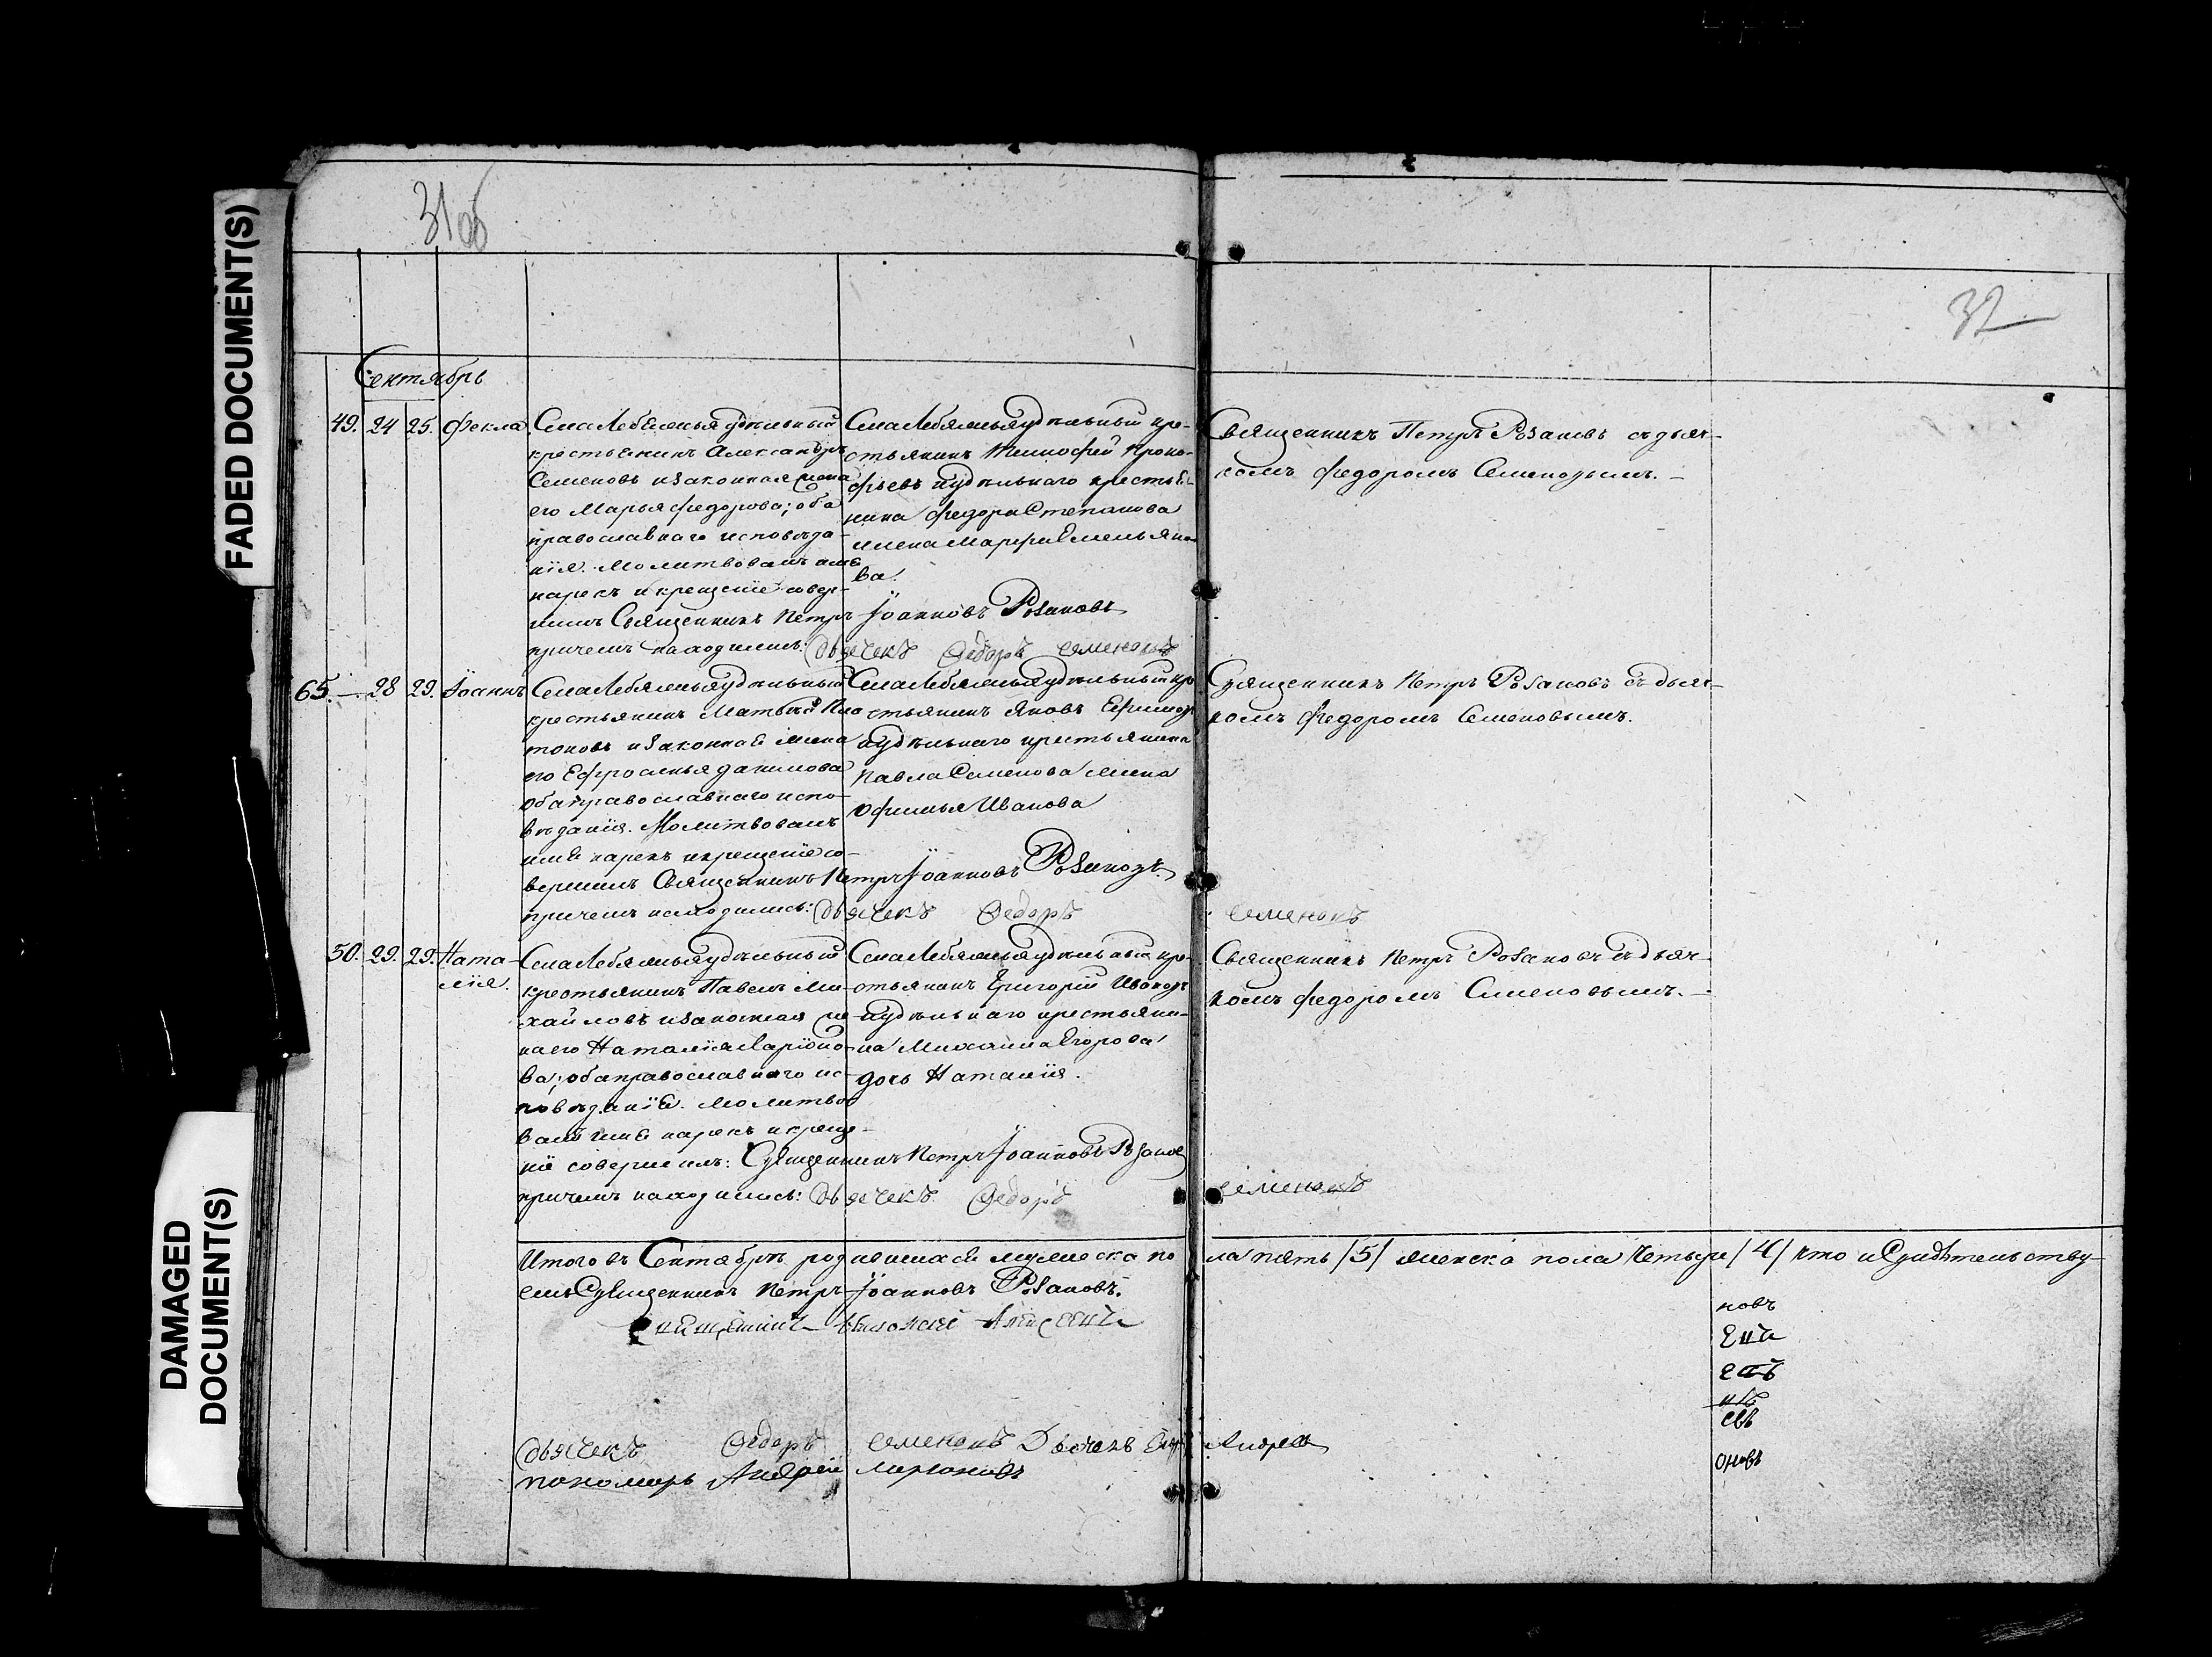 FADED DOCUMENT(S)
DAMAGED
DOCUMENT(S)
31 об
32
Сентябрь
49. 24 25. Фекла
Села Лебяжья удѣльный
крестьянинъ Александръ
Семеновъ и законная жена
его Марья Федорова; оба
православнаго исповѣда-
нія. Молитвовалъ имя
нарекъ и крещеніе совер-
шилъ Священникъ Петръ Іоанновъ Розановъ
причемъ находились: Дьячекъ Федоръ Семеновъ
Села Лебяжья удѣльный кре-
стьянинъ Тимофей Проко-
фьевъ и удѣльнаго крестья-
нина Федора Степанова
жена Марфа Емельяно-
ва.
Священникъ Петръ Розановъ съ дьяч-
комъ Федоромъ Семеновымъ.
65. — 28 29. Іоаннъ
Села Лебяжья удѣльный
крестьянинъ Матвѣй Пла-
тоновъ и законная жена
его Ефросинья Данилова
оба православнаго испо-
вѣданія. Молитвовалъ
имя нарекъ и крещеніе со-
вершилъ Священникъ Петръ Іоанновъ Розановъ
причемъ находились: Дьячекъ Федоръ Семеновъ
Села Лебяжья удѣльный кре
стьянинъ Яковъ Ефимовъ
и удѣльнаго крестьянина
Павла Семенова жена
Офимья Иванова
Священникъ Петръ Розановъ съ дьяч-
комъ Федоромъ Семеновымъ.
50. 29. 29. Ната-
лія.
Села Лебяжья удѣльный
крестьянинъ Павелъ Ми-
хайловъ и законная же-
на его Наталія Ларіоно-
ва; оба православнаго ис-
повѣданія. Молитво
валъ имя нарекъ и креще-
ніе совершилъ: Священникъ Петръ Іоанновъ Розановъ
причемъ находились: Дьячекъ Федоръ Семеновъ
Села Лебяжья удѣльный кре-
стьянинъ Григорій Ивановъ
и удѣльнаго крестьяни-
на Михаила Егорова
дочь Наталія.
Священникъ Петръ Розановъ съ дьяч-
комъ Федоромъ Семеновымъ.
Итого въ Сентябрѣ родившихся мужеска по ла пять /5/ женска пола четыре /4/ что и Свидѣтельству-
емъ Священникъ Петръ Іоанновъ Розановъ.
Священникъ
Дьячекъ Федоръ Семеновъ Дьячекъ Андреевъ
пономарь Андрей Ларіоновъ
новъ
евъ
оновъ